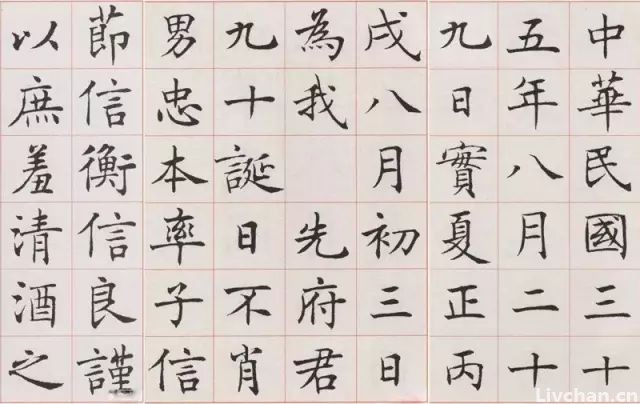 中華民國三十
五年八月二十
九日實夏正丙
戌八月初三日
為我 先府君
九十誕日不肖
男忠本率子信
節信衡信良謹
以庶羞清酒之
Livchan.cn